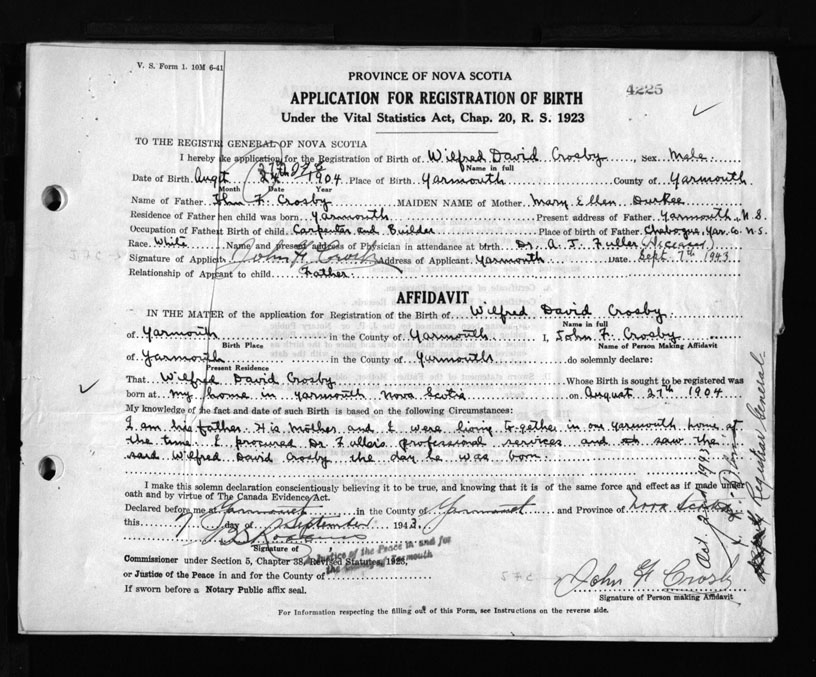 V. S. Form 1. 10M 6-41
PROVINCE OF NOVA SCOTIA
4225
APPLICATION FOR REGISTRATION OF BIRTH
Under the Vital Statistics Act, Chap. 20, R. S. 1923
TO THE REGISTR GENERAL OF NOVA SCOTIA
I hereby ke application for the Registration of Birth of Wilfred David Crosby, Sex Male
Name in full
27th
Date of Birth Augt 24th 1904 Place of Birth Yarmouth County of Yarmouth
Month Date Year
Name of Father John F. Crosby MAIDEN NAME of Mother Mary Ellen Durkee
Residence of Father hen child was born Yarmouth Present address of Father Yarmouth N.S.
Occupation of Father t Birth of child Carpenter and Builder Place of birth of Father Chebogue, Yar. Co. N.S.
Race White Name and present address of Physician in attendance at birth Dr. A. J. Fuller (Deceased)
Signature of Applic John F Crosby Address of Applicant Yarmouth Date Sept 7th 1943
Relationship of Ap cant to child Father
AFFIDAVIT
IN THE MA TER of the application for Registration of the Birth of Wilfred David Crosby
Name in full
of Yarmouth in the County of Yarmouth I, John F. Crosby
Birth Place Name of Person Making Affidavit
of Yarmouth in the County of Yarmouth do solemnly declare:
Present Residence
That Wilfred David Crosby Whose Birth is sought to be registered was
born at my home in Yarmouth Nova Scotia on August 27th 1904
My knowledge of the fact and date of such Birth is based on the following Circumstances:
I am his father. His mother and I were living together in our Yarmouth home at
the time. I procured Dr. Fuller's professional services and saw the
said Wilfred David Crosby the day he was born.
I make this solemn declaration conscientiously believing it to be true, and knowing that it is of the same force and effect as if made under
oath and by virtue of The Canada Evidence Act.
Declared before me Yarmouth in the County of Yarmouth and Province of Nova Scotia
this 7 day of September 1943.
Signature of
Justice of the Peace in and for
the County of Yarmouth
Commissioner under Section 5, Chapter 38, Revised Statutes, 1923,
or Justice of the Peace in and for the County of
If sworn before a Notary Public affix seal.
John F Crosby
Signature of Person making Affidavit
For Information respecting the filling out of this Form, see Instructions on the reverse side.
Oct. 1943
Registrar General.